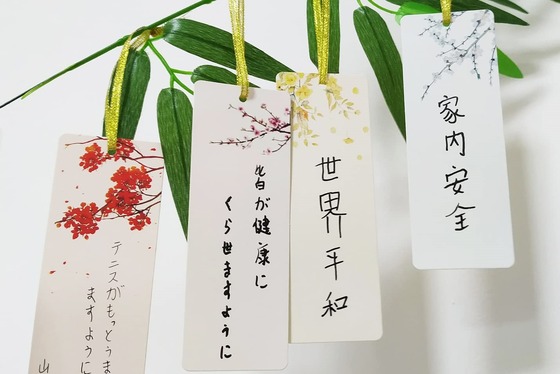 テニスがもっとうま
ますように
山
皆が健康に
くら世ますように
世界平和
家内安全